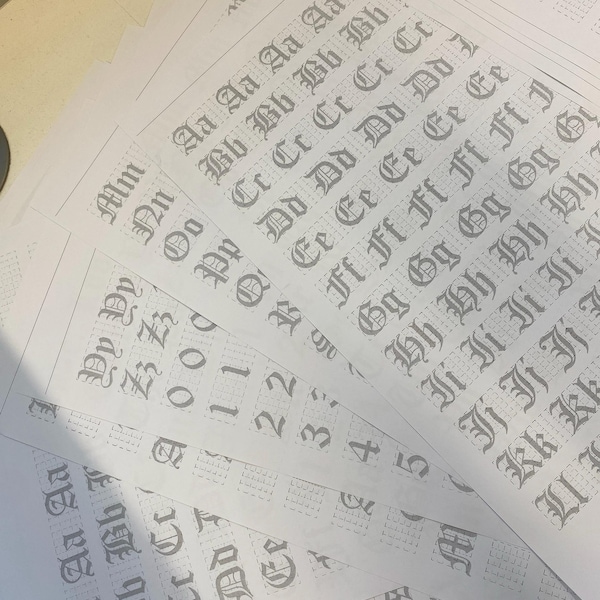 Aa Aa Aa Aa
Bb Bb Bb Bb
Cc Cc Cc Cc
Dd Dd Dd
Ee Ee Ee Ee
Ff Ff Ff Ff Ff
Gg Gg Gg Gg
Hh Hh Hh Hh
Ii Ii Ii Ii
Jj Jj Jj
Kk Kk
Ll
Mm
Nn
Oo
Pp
Yy Yy
Zz Zz
0 0
1 1
2 2
3
4
5
Aa Aa
Bb
Cc
Dd
Ee